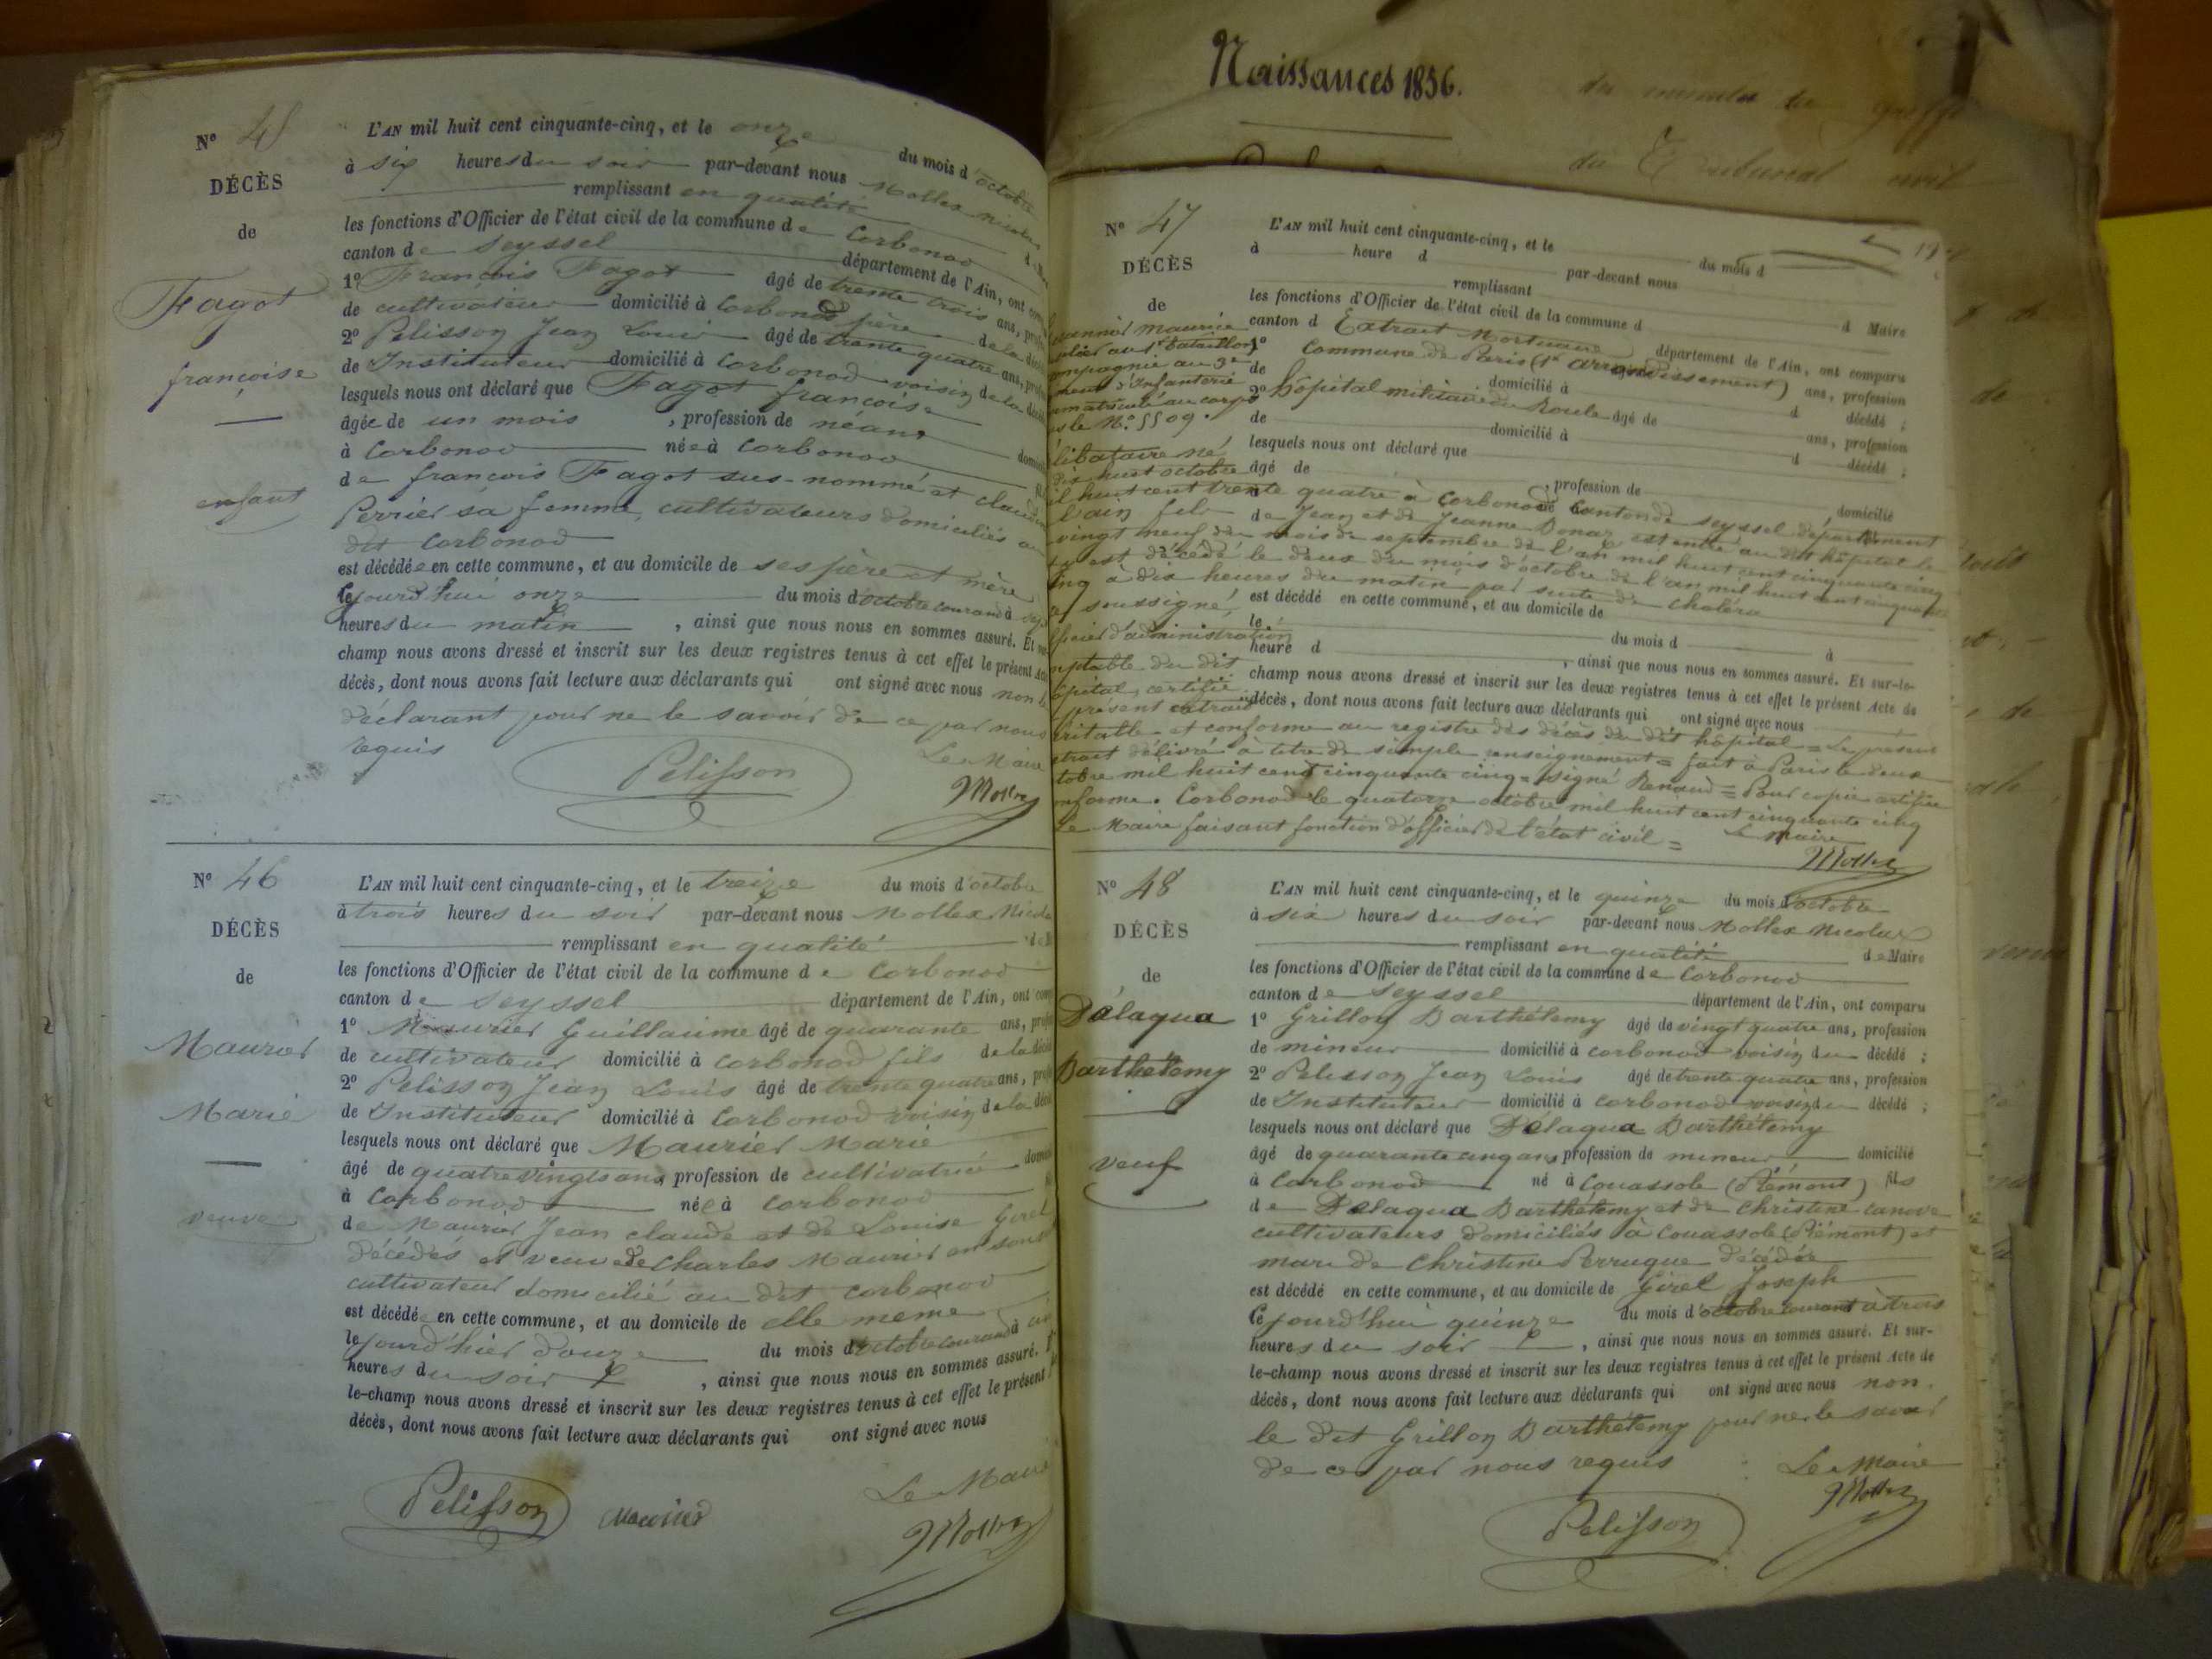 Naissances 1856.
du Tribunal civil
N° 45
DÉCÈS
de
Fagot
françoise
enfant
L'AN mil huit cent cinquante-cinq, et le onze du mois d'octobre
à six heures du soir par-devant nous Mollex Nicolas
remplissant en qualité
les fonctions d'Officier de l'état civil de la commune de Corbonod
canton de Seyssel département de l'Ain, ont
1° François Fagot âgé de trente trois ans,
de cultivateur domicilié à Corbonod père de la
2° Pelisson Jean Louis âgé de trente quatre ans,
de Instituteur domicilié à Corbonod voisin de la
lesquels nous ont déclaré que Fagot françoise
âgée de un mois , profession de néant
à Corbonod née à Corbonod
de françois Fagot sus-nommé et
Perrier sa femme, cultivateurs domiciliés au
dit Corbonod
est décédée en cette commune, et au domicile de ses père et mère
cejourd'hui onze du mois d'octobre courant à
heures du matin , ainsi que nous nous en sommes assuré. Et
champ nous avons dressé et inscrit sur les deux registres tenus à cet effet le présent
décès, dont nous avons fait lecture aux déclarants qui ont signé avec nous non le
déclarant pour ne le savoir de ce par nous
requis
Le Maire
Pelisson
Mollex
N° 46
DÉCÈS
de
Maurier
Marie
veuve
L'AN mil huit cent cinquante-cinq, et le treize du mois d'octobre
à trois heures du soir par-devant nous Mollex Nicolas
remplissant en qualité
les fonctions d'Officier de l'état civil de la commune de Corbonod
canton de Seyssel département de l'Ain, ont
1° Maurier Guillaume âgé de quarante ans,
de cultivateur domicilié à Corbonod fils de la
2° Pelisson Jean Louis âgé de trente quatre ans,
de Instituteur domicilié à Corbonod voisin de la
lesquels nous ont déclaré que Maurier Marie
âgé de quatre vingts ans, profession de cultivatrice
à Corbonod née à Corbonod
de Maurier Jean claude et de Louise Girel
décédés et veuve de Charles Maurier
cultivateur domicilié au dit Corbonod
est décédée en cette commune, et au domicile de elle meme
le jourd'hier douze du mois d'octobre courant à
heures du soir , ainsi que nous nous en sommes assuré.
le-champ nous avons dressé et inscrit sur les deux registres tenus à cet effet le présent
décès, dont nous avons fait lecture aux déclarants qui ont signé avec nous
Le Maire
Pelisson Maurier
Mollex
N° 47
DÉCÈS
de
maurice
au 1er bataillon
compagnie au 3e
d'Infanterie
au corps
le N° 5509.
L'AN mil huit cent cinquante-cinq, et le du mois d
à heure d par-devant nous
remplissant
les fonctions d'Officier de l'état civil de la commune d d Maire
canton d Extrait Mortuaire département de l'Ain, ont comparu
1° Commune de Paris (1er arrondissement) ans, profession
de domicilié à d décédé ;
2° hôpital militaire du Roule âgé de ans, profession
de domicilié à d décédé ;
lesquels nous ont déclaré que
célibataire né
dix huit octobre âgé de , profession de domicilié
mil huit cent trente quatre à Corbonod Canton de Seyssel département
l'ain fils de Jean et de Jeanne Bonaz est entré au dit hôpital le
vingt neuf du mois de septembre de l'an mil huit cent cinquante cinq
est décédé le deux du mois d'octobre de l'an mil huit cent cinquante
cinq à dix heures du matin par suite de choléra
soussigné, est décédé en cette commune, et au domicile de
le du mois d à
officier d'administration
heure d , ainsi que nous nous en sommes assuré. Et sur-le-
comptable du dit
champ nous avons dressé et inscrit sur les deux registres tenus à cet effet le présent Acte de
hôpital, certifie
présent extrait décès, dont nous avons fait lecture aux déclarants qui ont signé avec nous
véritable et conforme au registre des décès du dit hôpital = Le présent
extrait délivré à titre de simple renseignement = fait à Paris le deux
octobre mil huit cent cinquante cinq = signé Renaud = Pour copie certifiée
conforme. Corbonod le quatorze octobre mil huit cent cinquante cinq
Le Maire faisant fonction d'officier de l'état civil =
Le maire
Mollex
N° 48
DÉCÈS
de
Délaqua
Barthélemy
veuf
L'AN mil huit cent cinquante-cinq, et le quinze du mois d'octobre
à six heures du soir par-devant nous Mollex Nicolas
remplissant en qualité de Maire
les fonctions d'Officier de l'état civil de la commune de Corbonod
canton de Seyssel département de l'Ain, ont comparu
1° Grillon Barthélemy âgé de vingt quatre ans, profession
de mineur domicilié à corbonod voisin du décédé ;
2° Pelisson Jean Louis âgé de trente quatre ans, profession
de Instituteur domicilié à corbonod voisin du décédé ;
lesquels nous ont déclaré que Délaqua Barthélemy
âgé de quarante cinq ans, profession de mineur domicilié
à Corbonod né à Couassole (Piémont) fils
de Delaqua Barthélemy et de Christine canova
cultivateurs domiciliés à Couassole (Piémont) et
mari de Christine Perruque décédée
est décédé en cette commune, et au domicile de Girel Joseph
cejourd'hui quinze du mois d'octobre courant à trois
heures du soir , ainsi que nous nous en sommes assuré. Et sur-
le-champ nous avons dressé et inscrit sur les deux registres tenus à cet effet le présent Acte de
décès, dont nous avons fait lecture aux déclarants qui ont signé avec nous non
le dit Grillon Barthélemy pour ne le savoir
de ce par nous requis
Le Maire
Mollex
Pelisson